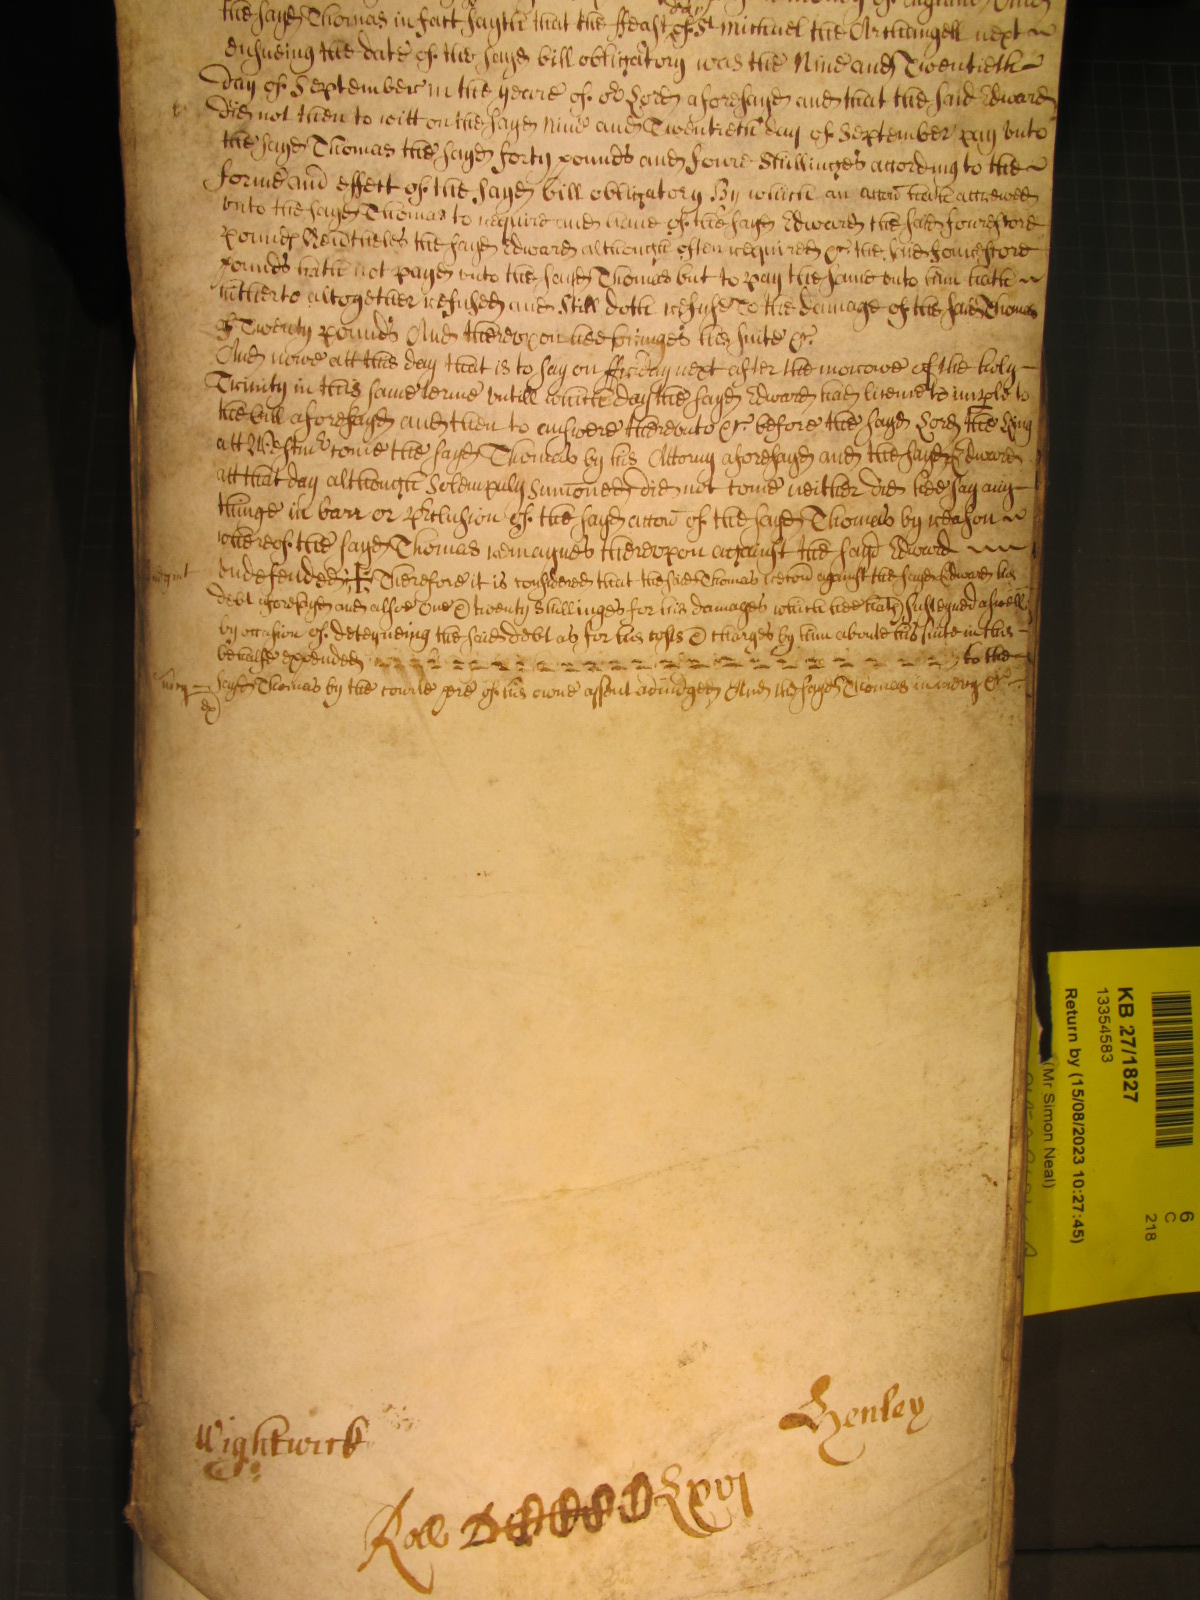 the sayd Thomas in fact sayth that the ffeast day of St Michael the Archangell next
ensueing the date of the sayd bill obligatory was the Nine and Twentieth
day of September in the yeare of or Lord aforesayd and that the said Edward
did not then to witt on the sayd Nine and Twentieth day of September pay unto
the sayd Thomas the sayd forty pounds and foure Shillinges according to the
forme and effect of the sayd bill obligatory By which an accon hath accrewed
unto the sayd Thomas to require and have of the sayd Edward the said fourescore
pounds Neverthelesse the sayd Edward although often required &c the said fourescore
pounds hath not payd unto the sayd Thomas but to pay the same unto him hath
hitherto altogether refused and still doth refuse To the damage of the said Thomas
of Twenty pounds And thereupon hee bringes his suite &c
And nowe att this day that is to say on ffriday next after the morrowe of the holy
Trinity in this same terme untill which day the sayd Edward had licence to imple to
the bill aforesayd and then to answere thereunto &c before the sayd Lord the King
att Westmr come the sayd Thomas by his Attorny aforesayd and the sayd Edward
att that day although Solempnly Sumoned did not come neither did hee say any
thinge in barr or p'clusion of the sayd accon of the sayd Thomas by reason
whereof the sayd Thomas remaynes thereupon against the sayd Edward
undefended Therefore it is considered that the said Thomas recou against the sayd Edward his
debt aforesayd and alsoe One & twenty Shillinges for his damages which hee hath susteyned aswell
by occasion of deteyneing the said debt as for his costs & charges by him aboute his suite in this
behalfe expended to the
sayd Thomas by the courte of his owne assent adiudged And the sayd Thomas in mercy &c
Wightwick
Henley
Roll Lxvi
KB 27/1827
13354583
Return by (15/08/2023 10:27:45)
(Mr Simon Neal)
6
C
218